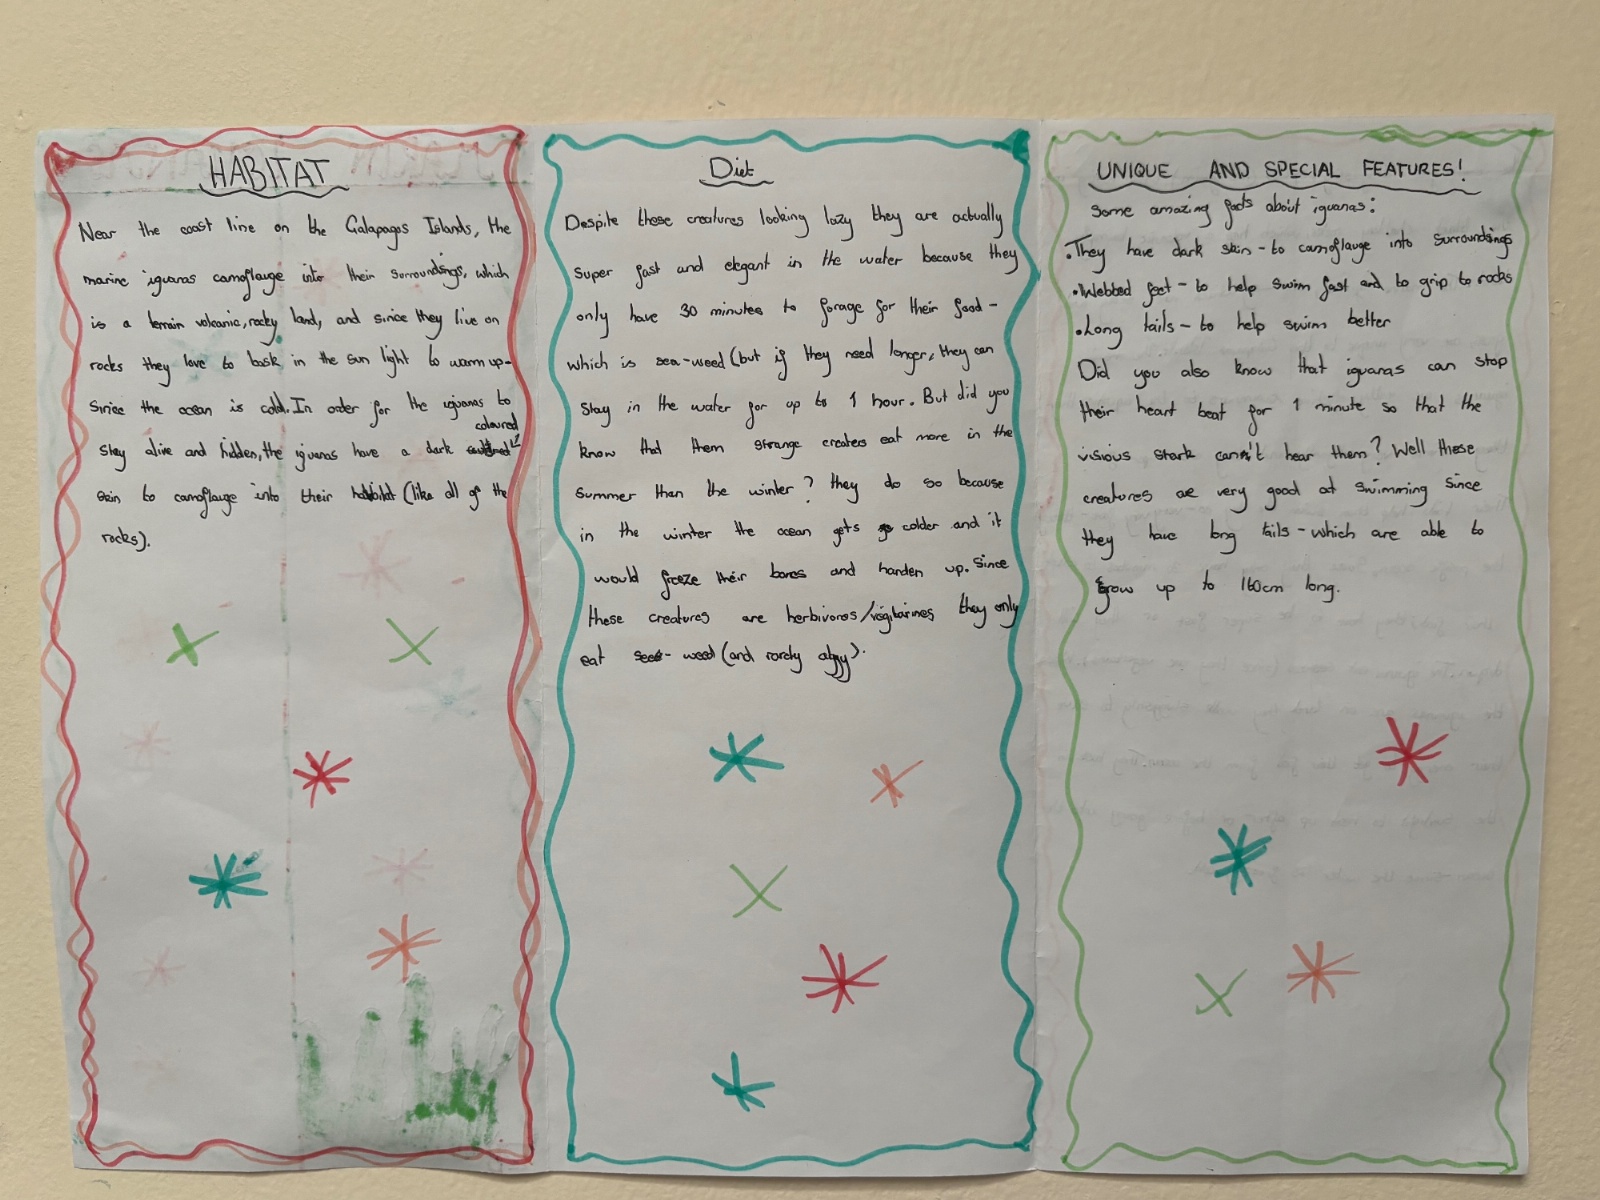 HABITAT
Near the coast line on the Galapagos Islands, the
marine iguanas camoflauge into their surroundsings, which
is a terrain volcanic, rocky land, and since they live on
rocks they love to bask in the sun light to warm up-
Since the ocean is cold. In order for the iguanas to
coloured
stay alive and hidden, the iguanas have a dark
skin to camoflauge into their habitat (like all of the
rocks).
Diet
Despite these creatures looking lazy they are actually
super fast and elegant in the water because they
only have 30 minutes to forage for their food-
which is sea-weed (but if they need longer, they can
stay in the water for up to 1 hour. But did you
know that them strange creaters eat more in the
summer than the winter? they do so because
in the winter the ocean gets colder and it
would freeze their bones and harden up. Since
these creatures are herbivores/vegitarines they only
eat sea-weed (and rarely algy).
UNIQUE AND SPECIAL FEATURES!
Some amazing facts about iguanas:
•They have dark skin - to camoflauge into surroundsings
•Webbed feet - to help swim fast and to grip to rocks
•Long tails - to help swim better
Did you also know that iguanas can stop
their heart beat for 1 minute so that the
visious shark cann't hear them? Well these
creatures are very good at swimming since
they have long tails - which are able to
grow up to 160cm long.